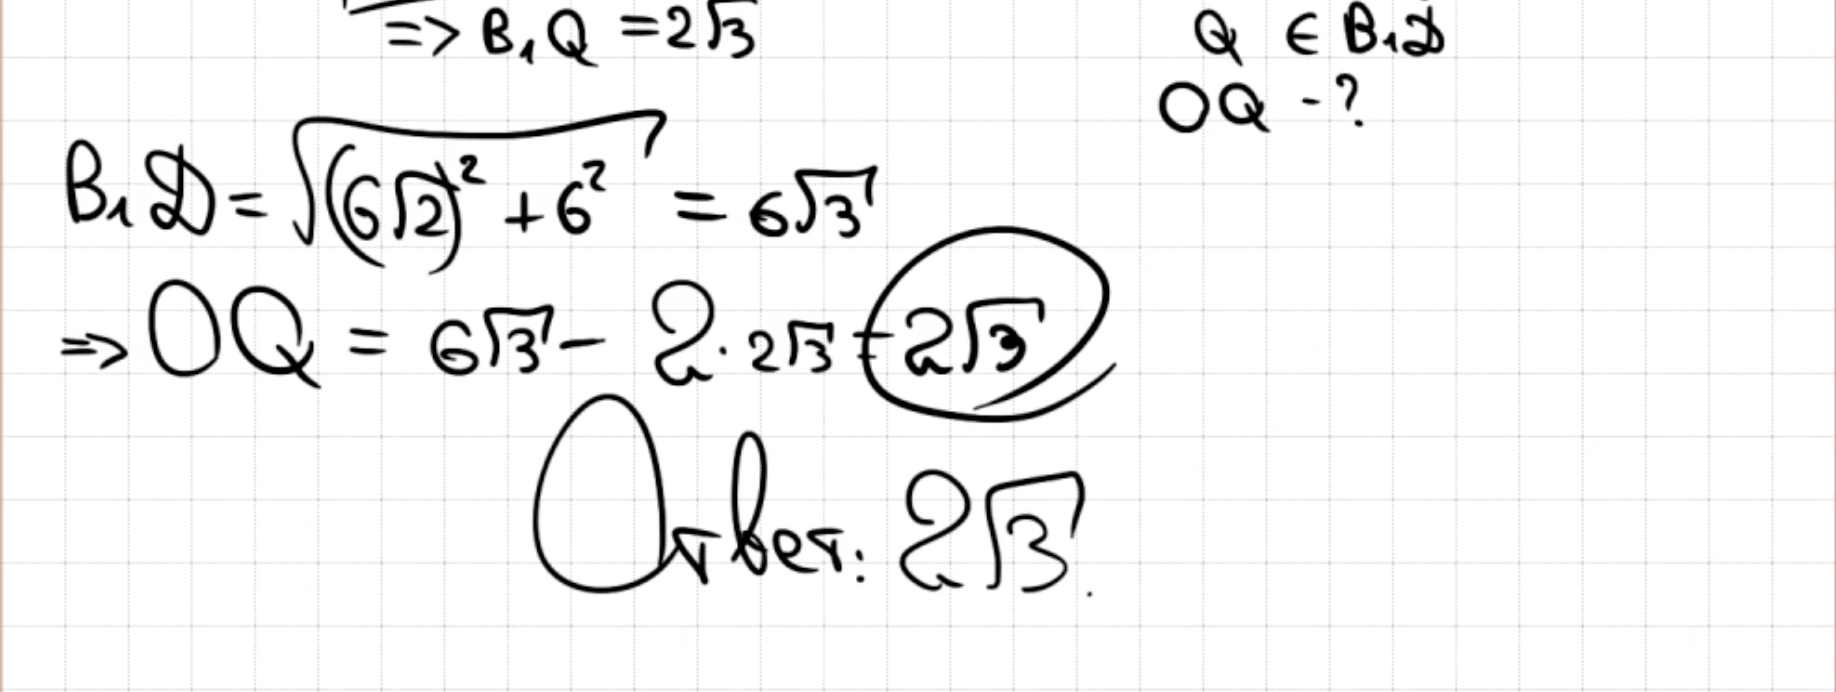 => B₁Q = 2√3
Q ∈ B₁D
OQ - ?
B₁D = √((6√2)² + 6²) = 6√3
=> OQ = 6√3 - 2·2√3 = 2√3
Ответ: 2√3.